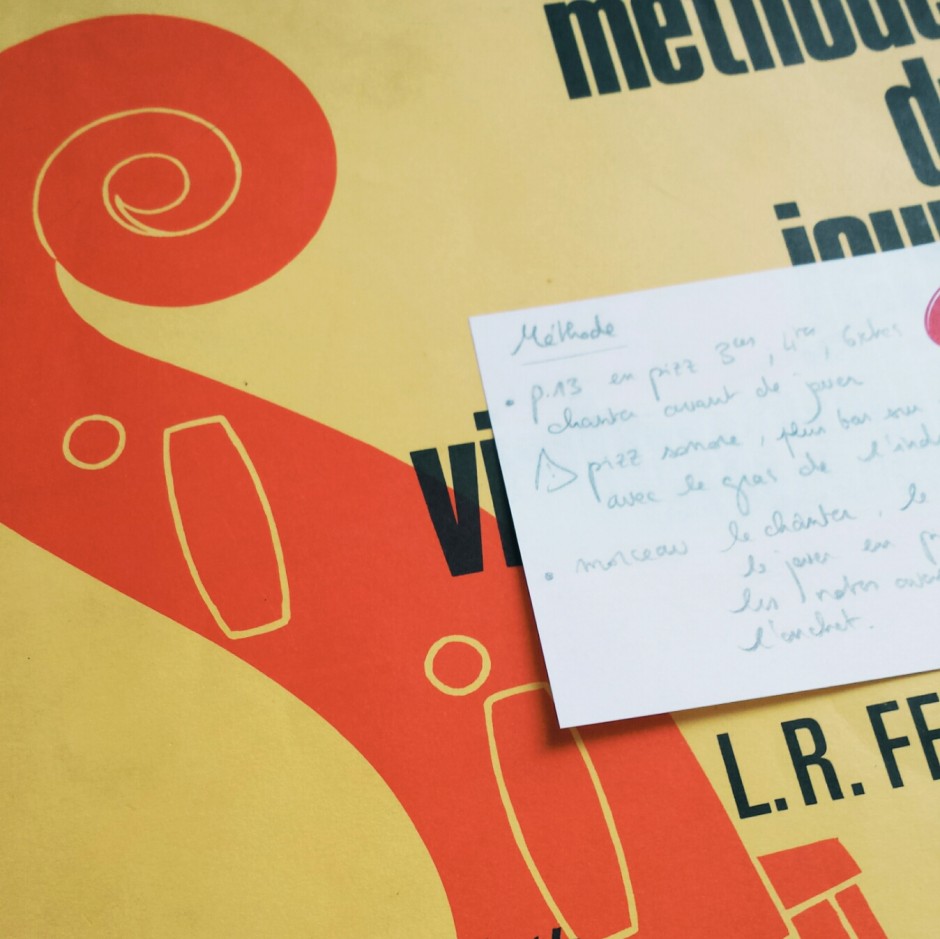 méthode
d
jou
vi
Méthode
• p.13 en pizz 3ces, 4tes, 6xtes
chanter avant de jouer
⚠ pizz sonore, plus bas sur
avec le gras de l'ind
• morceau le chanter, le
le jouer en p
les notes avan
l'archet.
L.R. FE